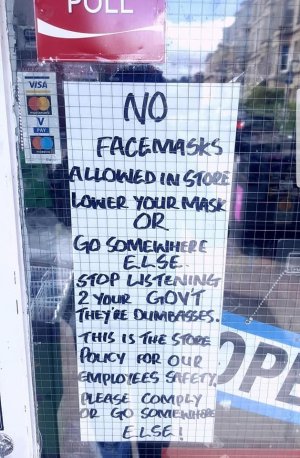 PULL
VISA
V
PAY
NO
FACEMASKS
ALLOWED IN STORE
LOWER YOUR MASK
OR
GO SOMEWHERE
ELSE.
STOP LISTENING
2 YOUR GOVT
THEY'RE DUMBASSES.
THIS IS THE STORE
POLICY FOR OUR
EMPLOYEES SAFETY.
PLEASE COMPLY
OR GO SOMEWHERE
ELSE!
OPE